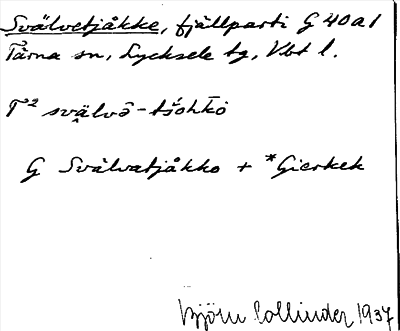 Svälvetjåkke, fjällparti G 40a1
Tärna sn, Lycksele lg, Vbt l.
T² svälvō-tśohkō
G Svälvatjåkko + *Gierkek
Björn Collinder 1937